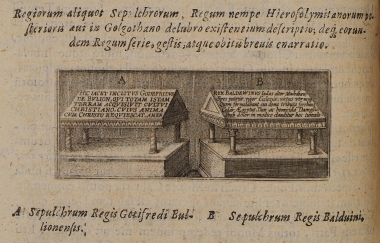 Regiorum aliquot Sepulchrorum, Regum nempe Hierosolymitanorum po
sterioris aui in Golgothano delubro existentium descriptio; deq, eorun-
dem Regum serie, gestis, atque obitu breuis enarratio.
A
B
HIC IACET INCLITVS GODEFRIDVS
DE BVLION, QVI TOTAM ISTAM
TERRAM ACQVISIVIT CVLTVI
CHRISTIANO, CVIVS ANIMA
CVM CHRISTO REQVIESCAT AMEN
REX BALDEWINVS Iudas alter Machabeus
A Sepulchrum Regis Gotifredi Bul-
lionensis.
B Sepulchrum Regis Balduini